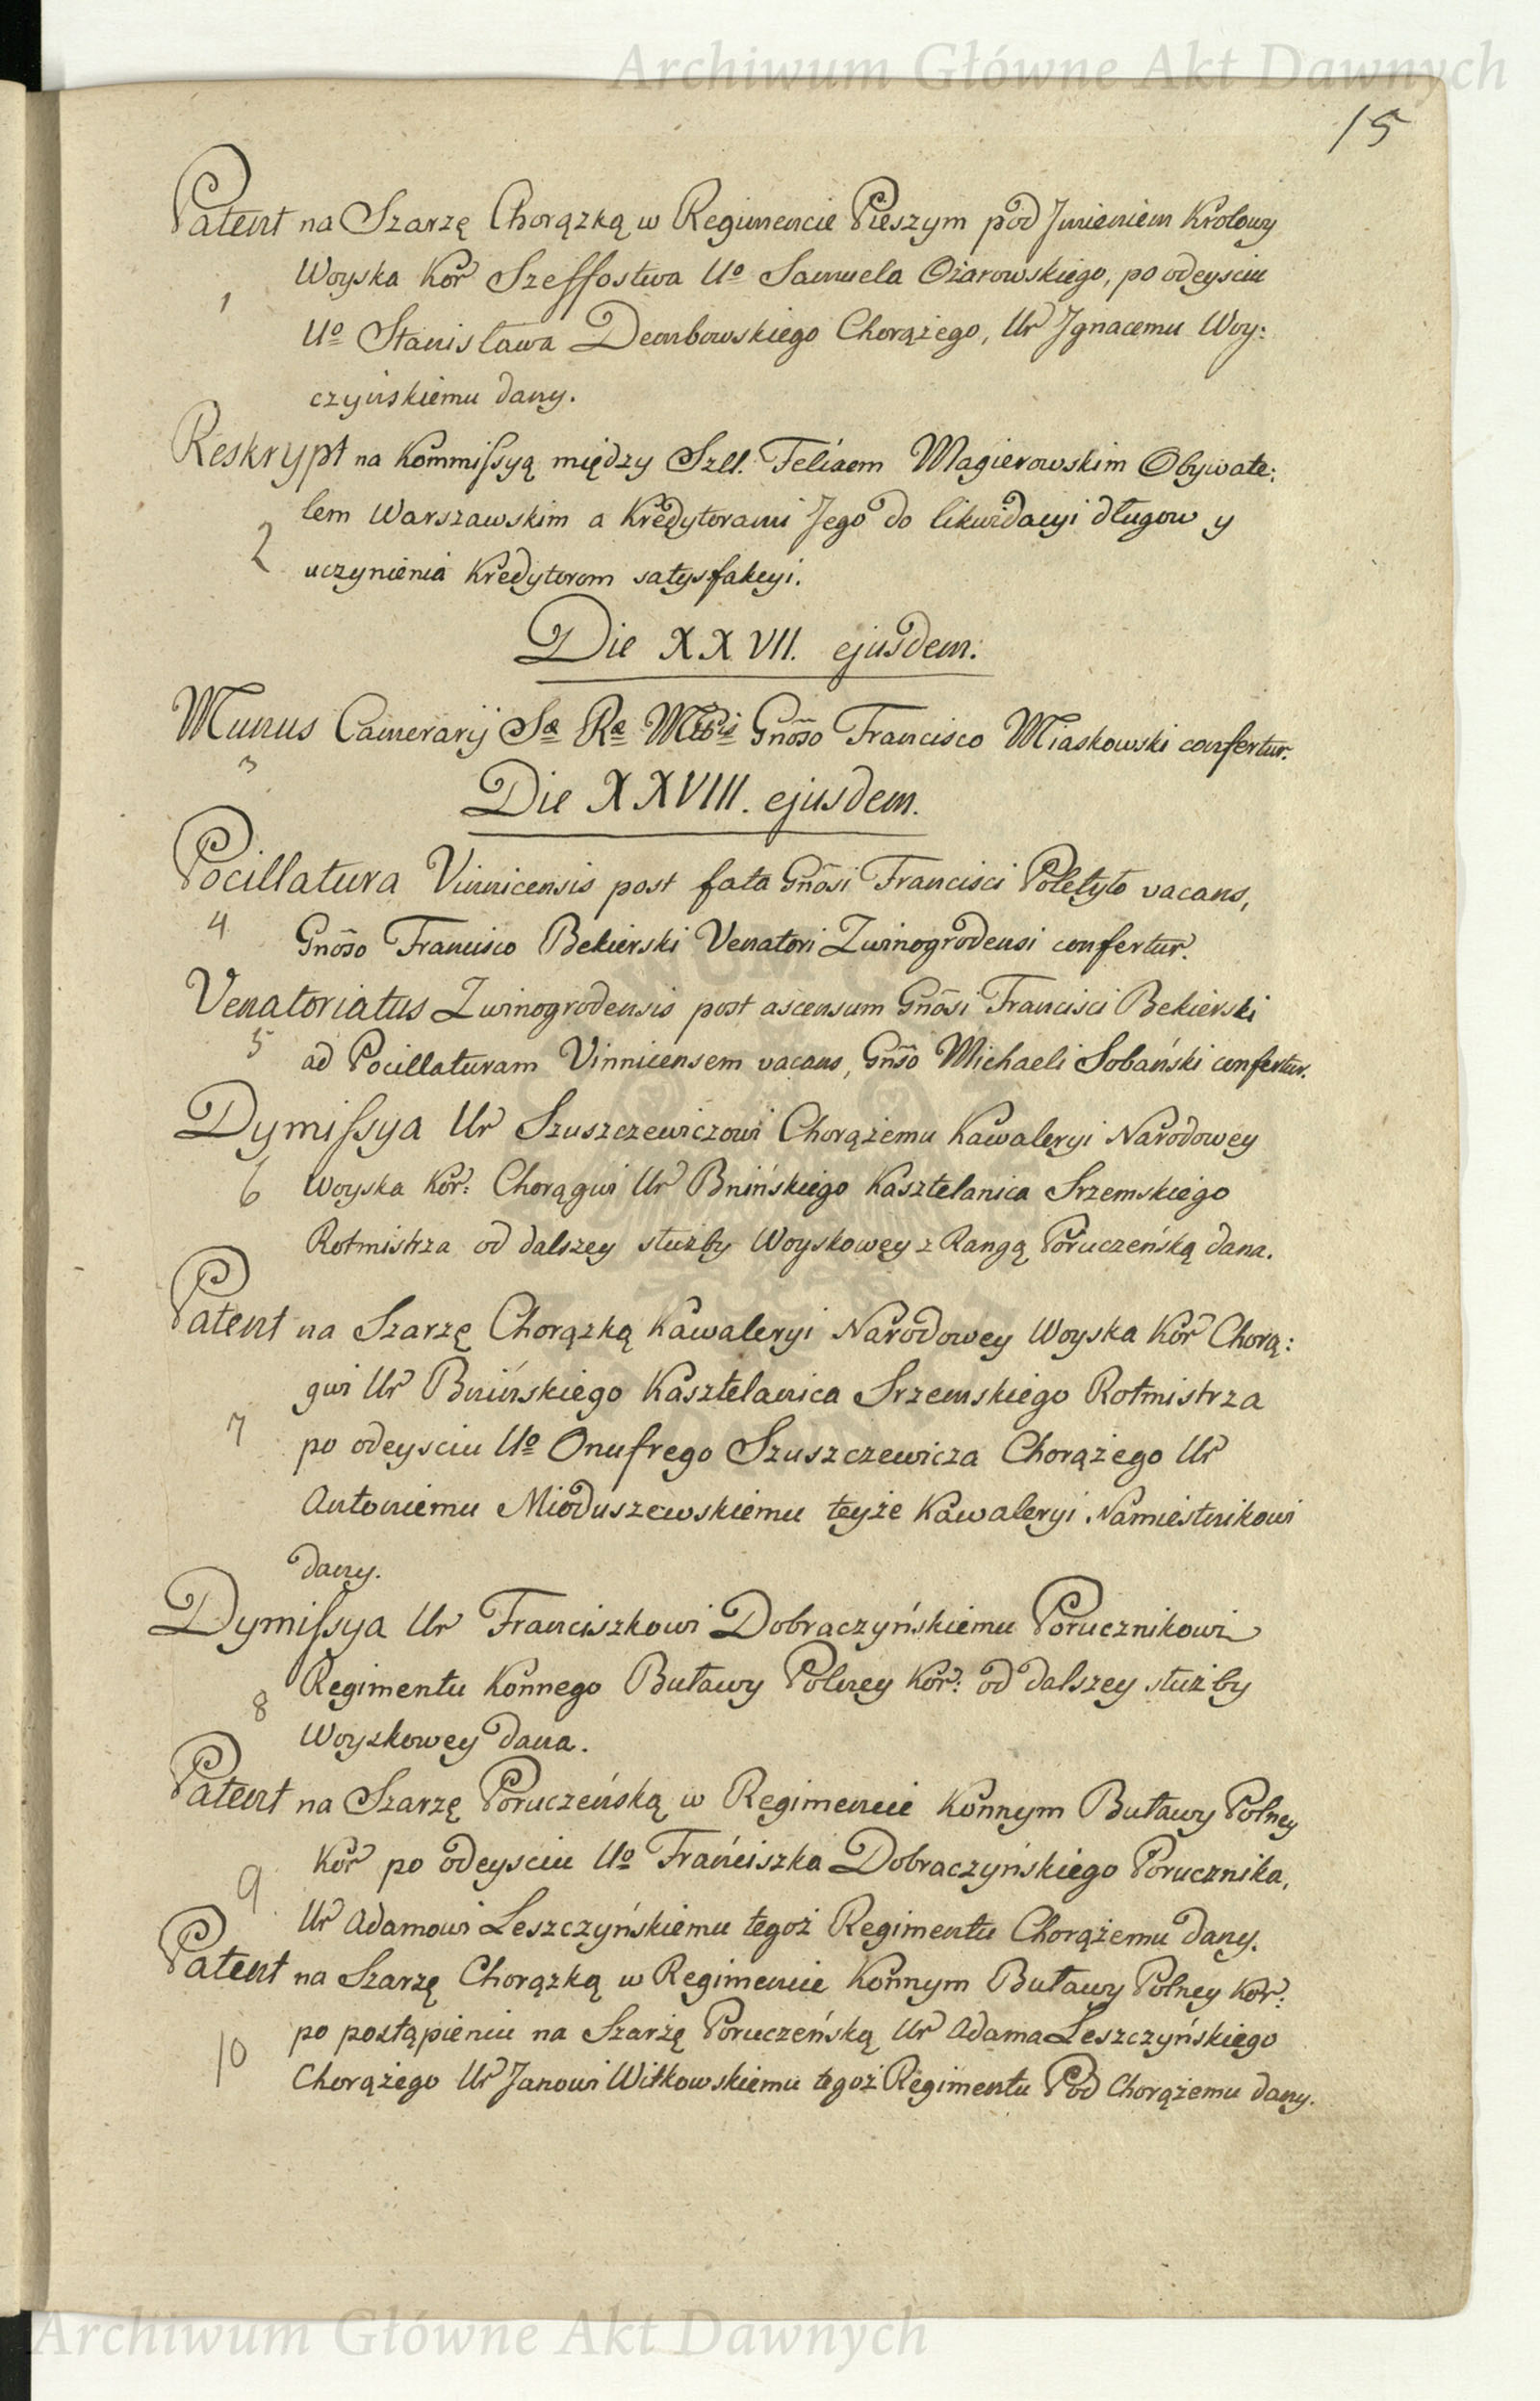 Archiwum Główne Akt Dawnych
15
Patent na Szarzę Chorązką w Regimencie Pieszym pod Jmieniem Krolowy
1
Woyska Kor Szeffostwa Uo Samuela Ożarowskiego, po odeysciu
Uo Stanisława Dembowskiego Chorążego, Ur Jgnacemu Woy:
czyńskiemu dany.
Reskrypt na Kommissyą między Szll. Felixem Magierowskim Obywate:
lem Warszawskim a Kredytorami Jego do likwidacyi długow y
2
uczynienia Kredytorom satysfakcyi.
Die XXVII. ejusdem.
Munus Camerarij Sæ Ræ Mttis Gnõso Francisco Miaskowski confertur.
3
Die XXVIII. ejusdem.
Pocillatura Vinnicensis post fata Gnõsi Francisci Poletyło vacans,
4
Gnõso Francisco Bekierski Venatori Zwinogrodensi confertur.
Venatoriatus Zwinogrodensis post ascensum Gnõsi Francisci Bekierski
5
ad Pocillaturam Vinnicensem vacans, Gnõso Michaeli Sobański confertur.
Dymissya Ur Szuszczewiczowi Chorążemu Kawaleryi Narodowey
6
Woyska Kor: Chorągwi Ur Bnińskiego Kasztelanica Srzemskiego
Rotmistrza od dalszey służby Woyskowey z Rangą Poruczeńską dana.
Patent na Szarzę Chorązką Kawaleryi Narodowey Woyska Kor Chorą:
gwi Ur Bnińskiego Kasztelanica Srzemskiego Rotmistrza
7
po odeysciu Uo Onufrego Szuszczewicza Chorążego Ur
Antoniemu Mioduszewskiemu teyże Kawaleryi Namiestnikowi
dany.
Dymissya Ur Franciszkowi Dobraczyńskiemu Porucznikowi
Regimentu Konnego Buławy Polney Kor: od dalszey służby
8
Woyskowey dana.
Patent na Szarzę Poruczeńską w Regimencie Konnym Buławy Polney
Kor po odeysciu Uo Franciszka Dobraczyńskiego Porucznika,
9
Ur Adamowi Leszczyńskiemu tegoż Regimentu Chorążemu dany.
Patent na Szarzę Chorązką w Regimencie Konnym Buławy Polney Kor:
po postąpieniu na Szarżę Poruczeńską Ur Adama Leszczyńskiego
10
Chorążego Ur Janowi Witkowskiemu tegoż Regimentu Pod Chorążemu dany.
Archiwum Główne Akt Dawnych